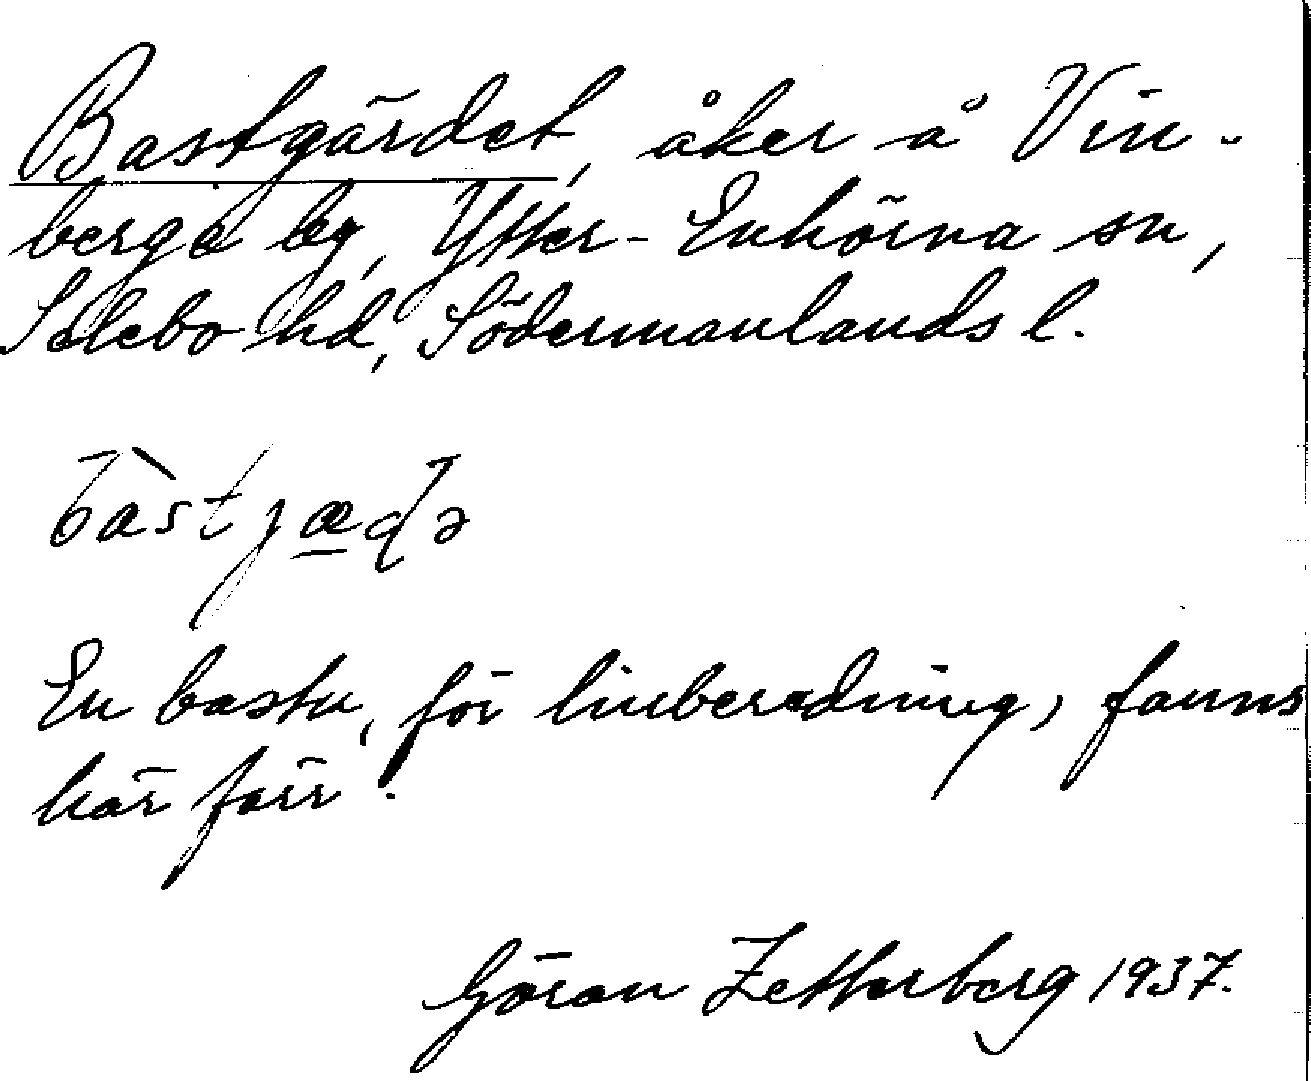 Bastgärdet, åker å Vin-
berga by, Ytter-Enhörna sn,
Selebo hd, Södermanlands l.
bàstjæḍə
En bastu, för linberedning, fanns
här förr.
Göran Zetterberg 1937.